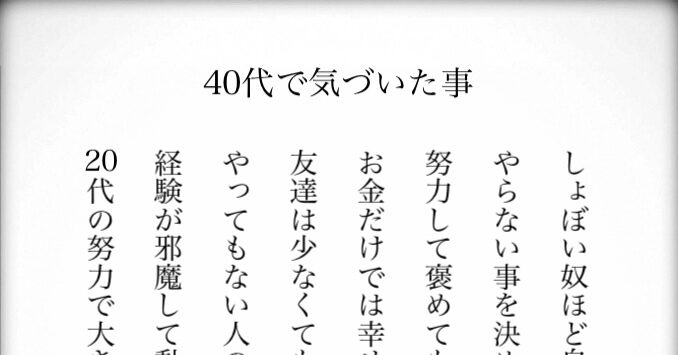 40代で気づいた事
しょぼい奴ほど
やらない事を決め
努力して褒めても
お金だけでは幸せ
友達は少なくても
やってもない人の
経験が邪魔して動
20代の努力で大き